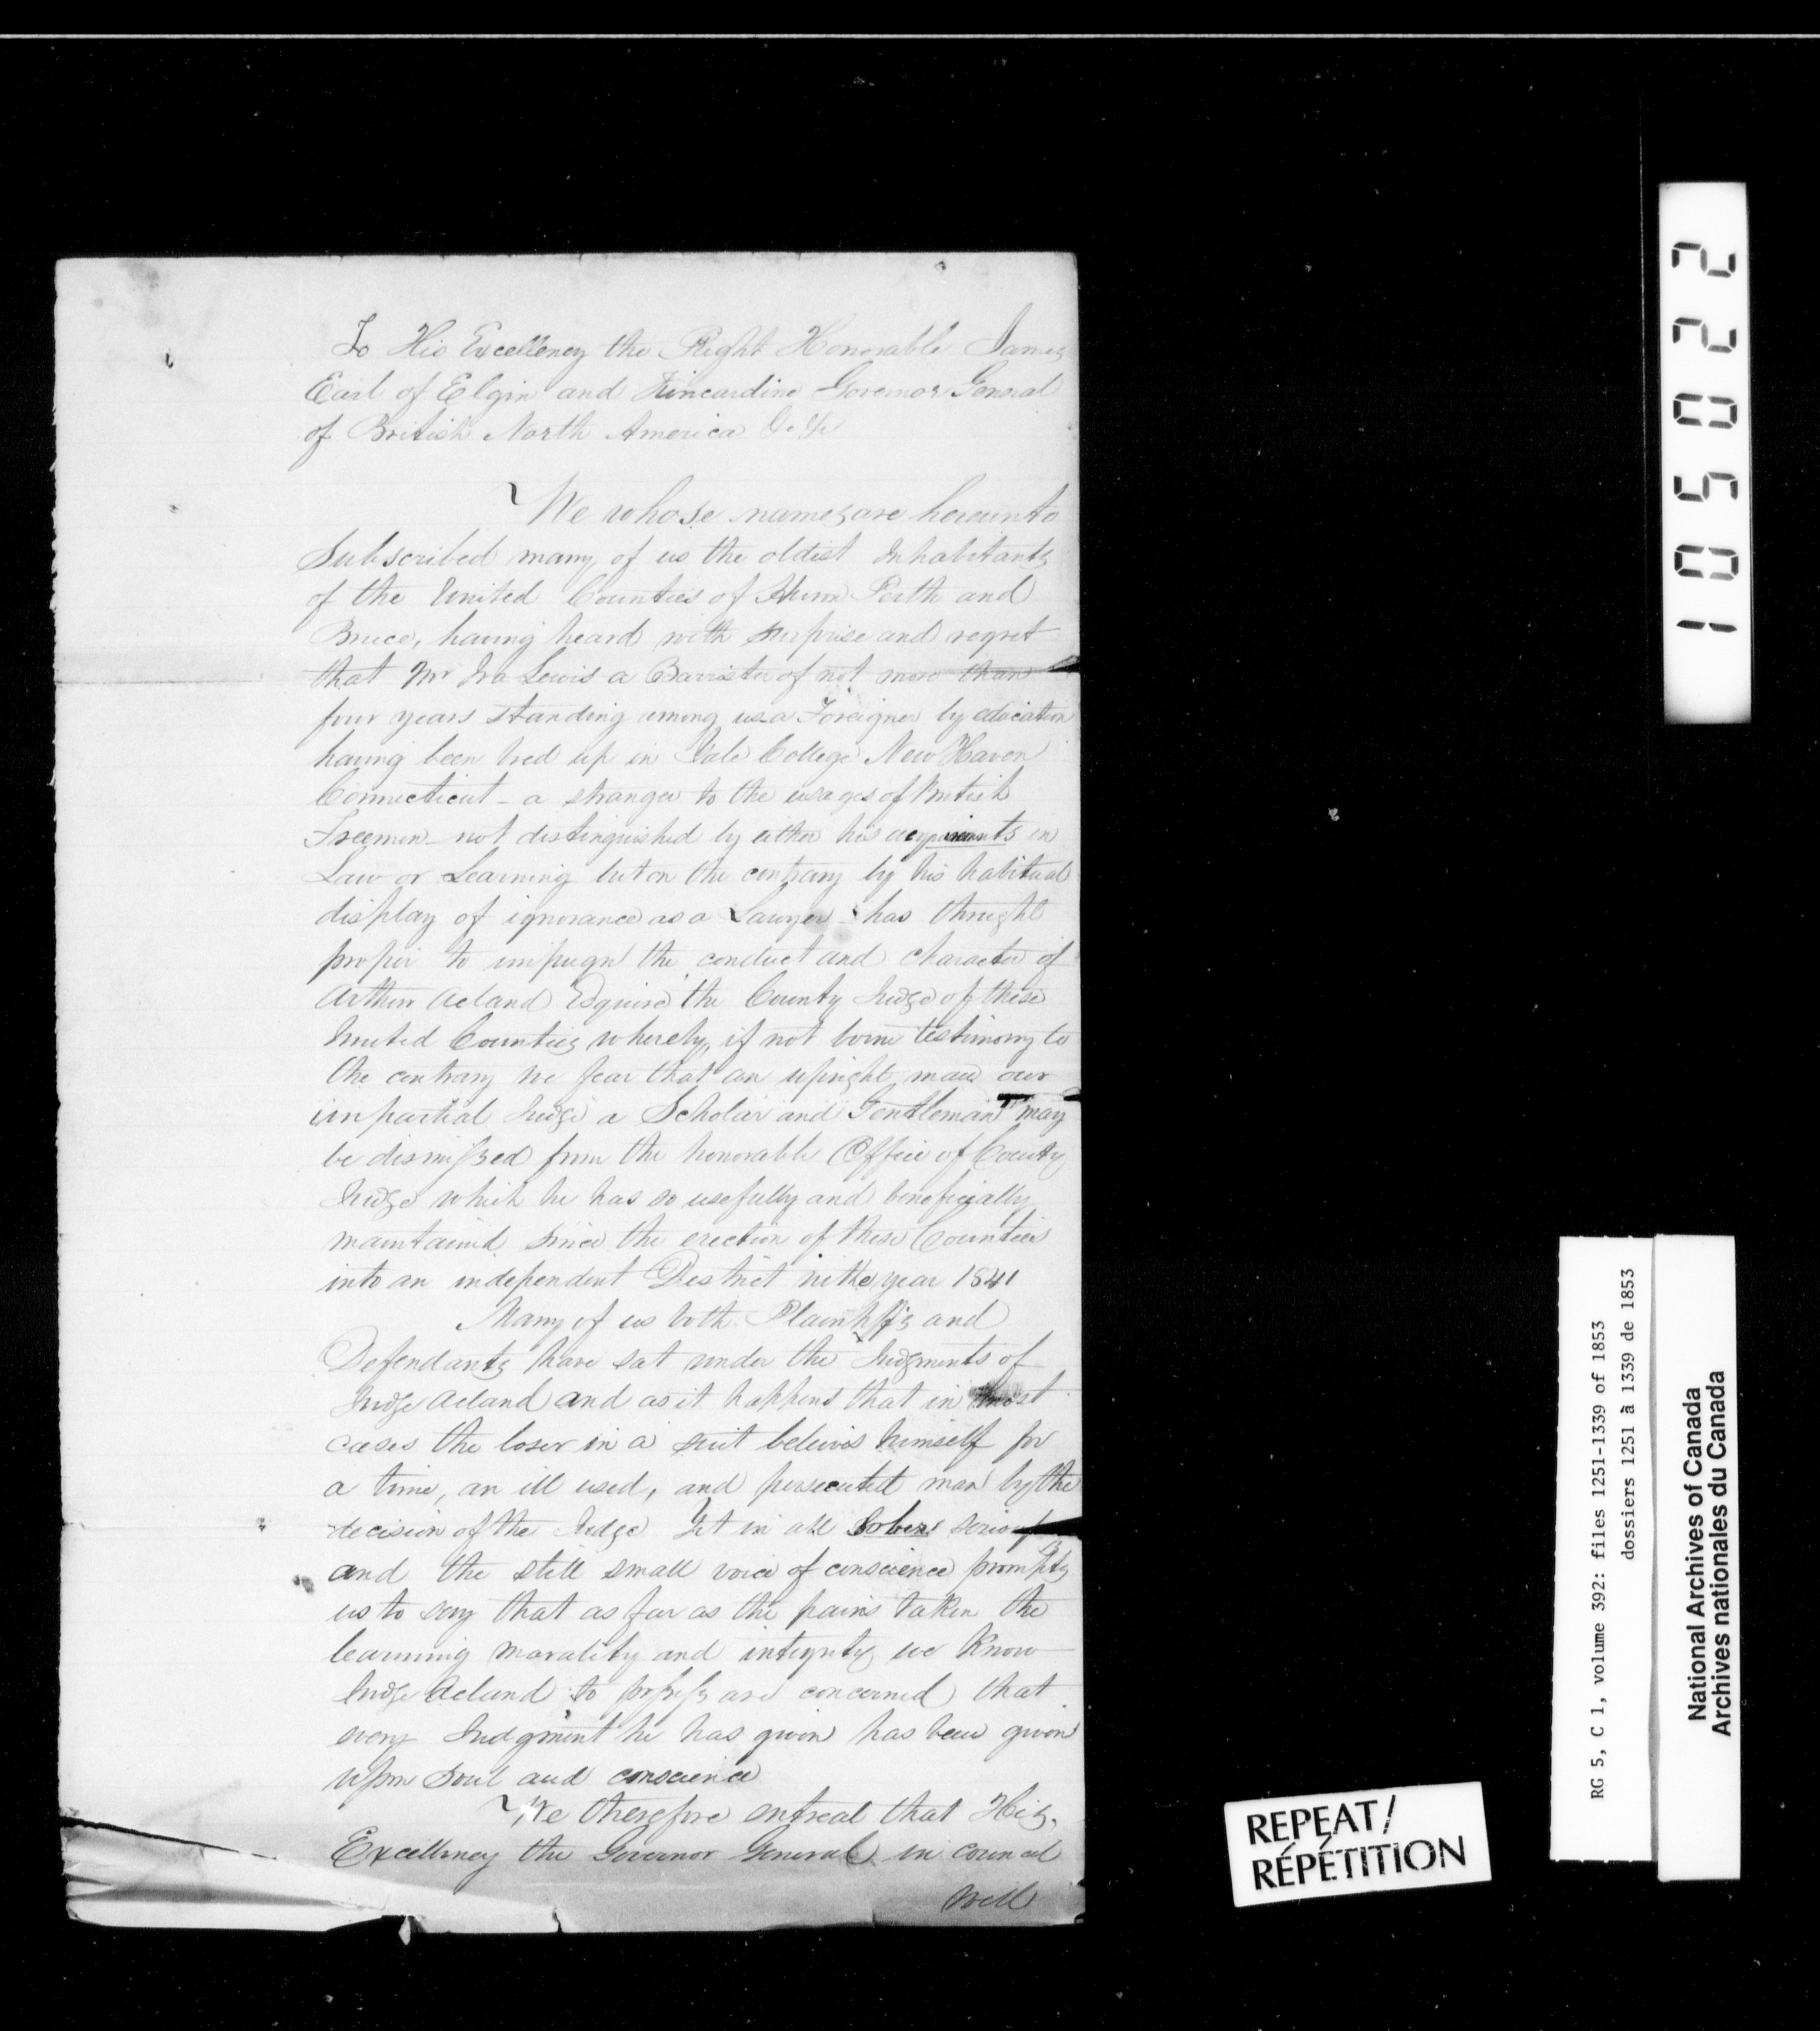 To His Excellency the Right Honorable James
Earl of Elgin and Kincardine Governor General
of British North America &c &c
We whose names are hereunto
Subscribed many of us the oldest Inhabitants
of the United Counties of Huron Perth and
Bruce, having heard with surprise and regret
that Mr Ira Lewis a Barrister of not more than
four years standing among us a Foreigner by education
having been bred up in Yale College New Haven
Connecticut - a stranger to the usages of British
Freemen - not distinguished by either his in
Law or Learning but on the contrary by his habitual
display of ignorance as a Lawyer - has thought
proper to impugn the conduct and character of
Arthur Acland Esquire the County Judge of these
United Counties whereby, if not borne testimony to
the contrary we fear that an upright man our
impartial Judge a Scholar and Gentleman may
be dismissed from the honorable Office of County
Judge which he has so usefully and beneficially
maintained since the erection of these Counties
into an independent District in the year 1841
Many of us both Plaintiffs and
Defendants have sat under the Judgments of
Judge Acland and as it happens that in most
cases the loser in a suit beleives himself for
a time, an ill used, and persecuted man by the
decision of the Judge Yet in all sober
and the still small voice of conscience prompts
us to say that as far as the pains taken the
learning morality and integrity we know
Judge Acland to possess are concerned that
every Judgment he has given has been given
upon Soul and conscience
We therefore entreat that His,
Excellency the Governor General in council
will
105022
RG 5, C 1, volume 392: files 1251-1339 of 1853
dossiers 1251 à 1339 de 1853
National Archives of Canada
Archives nationales du Canada
REPEAT/
RÉPÉTITION